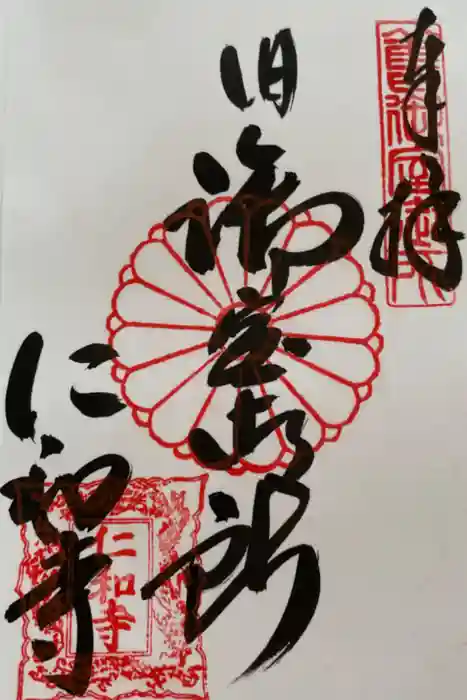 奉拝
旧御室御所
仁和寺
仁和寺